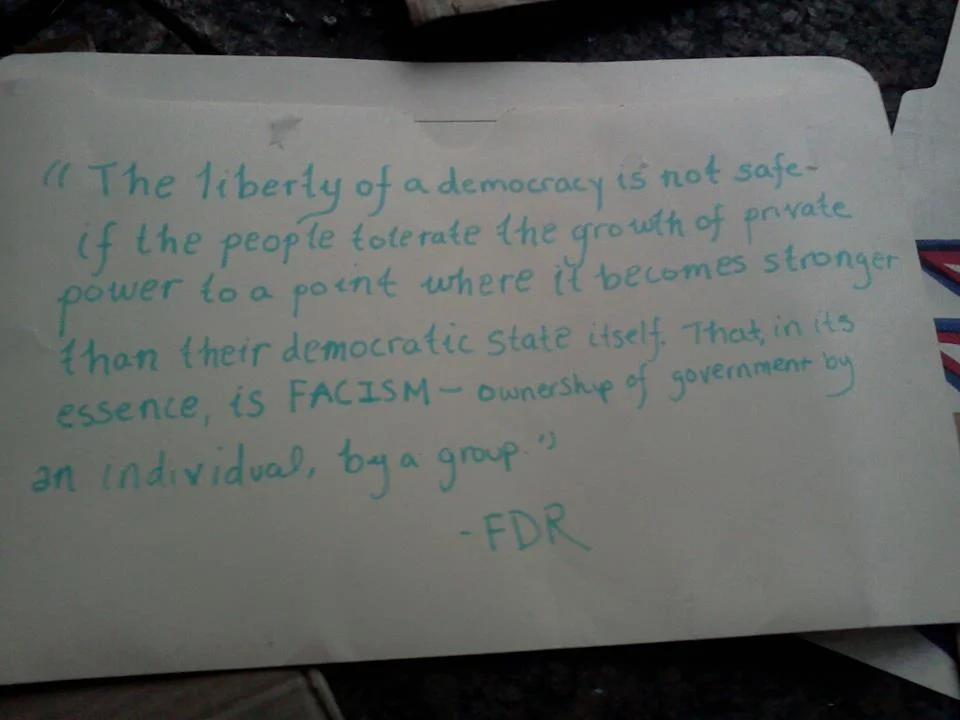 "The liberty of a democracy is not safe-
if the people tolerate the growth of private
power to a point where it becomes stronger
than their democratic state itself. That, in its
essence, is FACISM - ownership of government by
an individual, by a group."
-FDR